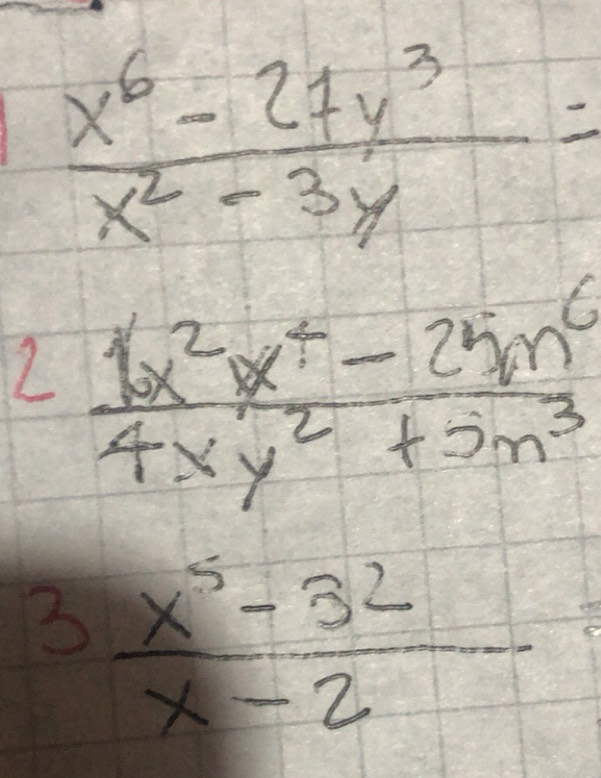 1 x⁶ - 27y³ / x² - 3y =
2 16x²y⁴ - 25m⁶ / 4xy² + 5m³
3 x⁵ - 32 / x - 2 =